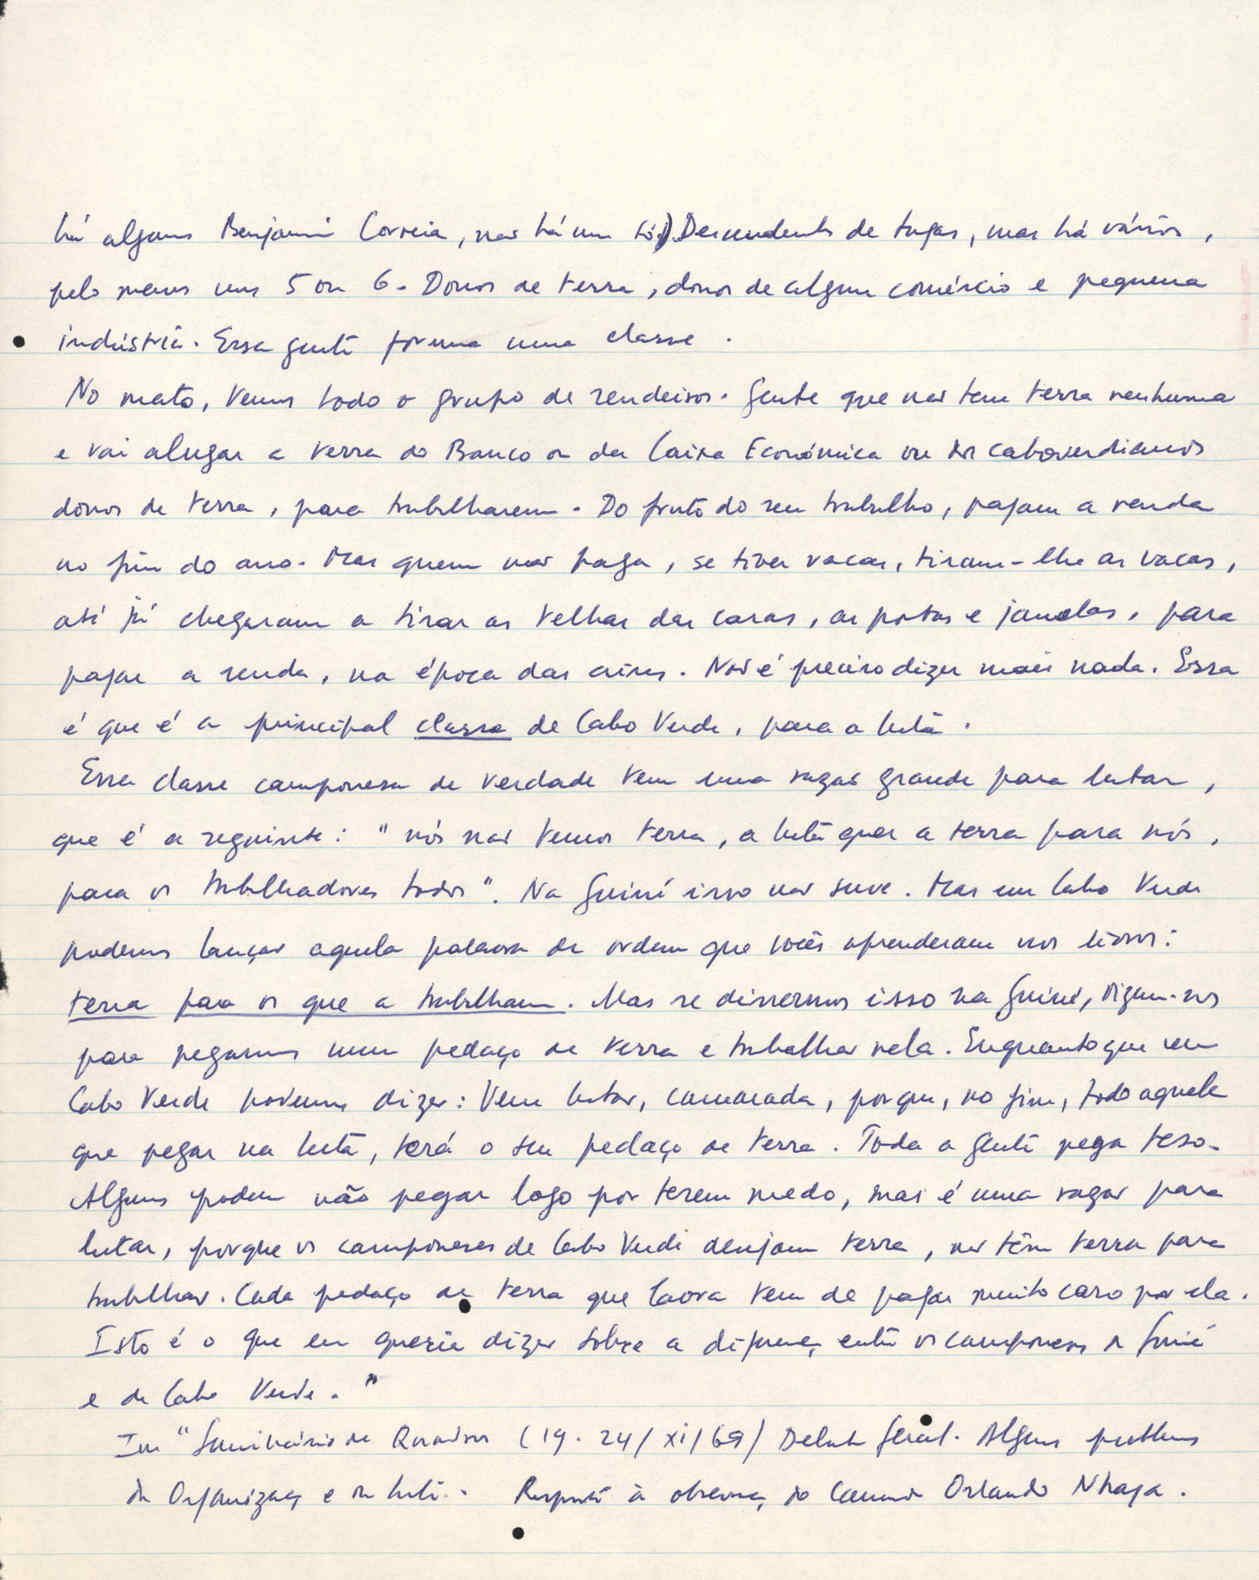 há alguns Benjamin Correia, não há um só) Descendentes de tugas, mas há vários,
pelo menos uns 5 ou 6. Donos de terra, donos de algum comércio e pequena
indústria. Essa gente forma uma classe.
No mato, temos todo o grupo de rendeiros. Gente que não tem terra nenhuma
e vai alugar a terra do Banco ou da Caixa Económica ou dos caboverdianos
donos de terra, para trabalharem. Do fruto do seu trabalho, pagam a renda
no fim do ano. Mas quem não paga, se tiver vacas, tiram-lhe as vacas,
até já chegaram a tirar as telhas das casas, as portas e janelas, para
pagar a renda, na época das crises. Não é preciso dizer mais nada. Essa
é que é a principal classe de Cabo Verde, para a luta.
Essa classe camponesa de verdade tem uma razão grande para lutar,
que é a seguinte: "nós não temos terra, a luta quer a terra para nós,
para os trabalhadores todos". Na Guiné isso não serve. Mas em Cabo Verde
podemos lançar aquela palavra de ordem que vocês aprenderam nos livros:
terra para os que a trabalham. Mas se dissermos isso na Guiné, digam-nos
para pegarmos num pedaço de terra e trabalhar nela. Enquanto que em
Cabo Verde podemos dizer: Vem lutar, camarada, porque, no fim, todo aquele
que pegar na luta, terá o seu pedaço de terra. Toda a gente pega teso.
Alguns podem não pegar logo por terem medo, mas é uma razão para
lutar, porque os camponeses de Cabo Verde desejam terra, não têm terra para
trabalhar. Cada pedaço de terra que lavra tem de pagar muito caro por ela.
Isto é o que eu queria dizer sobre a diferença entre os camponeses da Guiné
e de Cabo Verde."
In "Seminário de Quadros (19-24/XI/69) Debate Geral. Alguns problemas
da Organização e da luta. Resposta à observação do Camarada Orlando Nhaga.